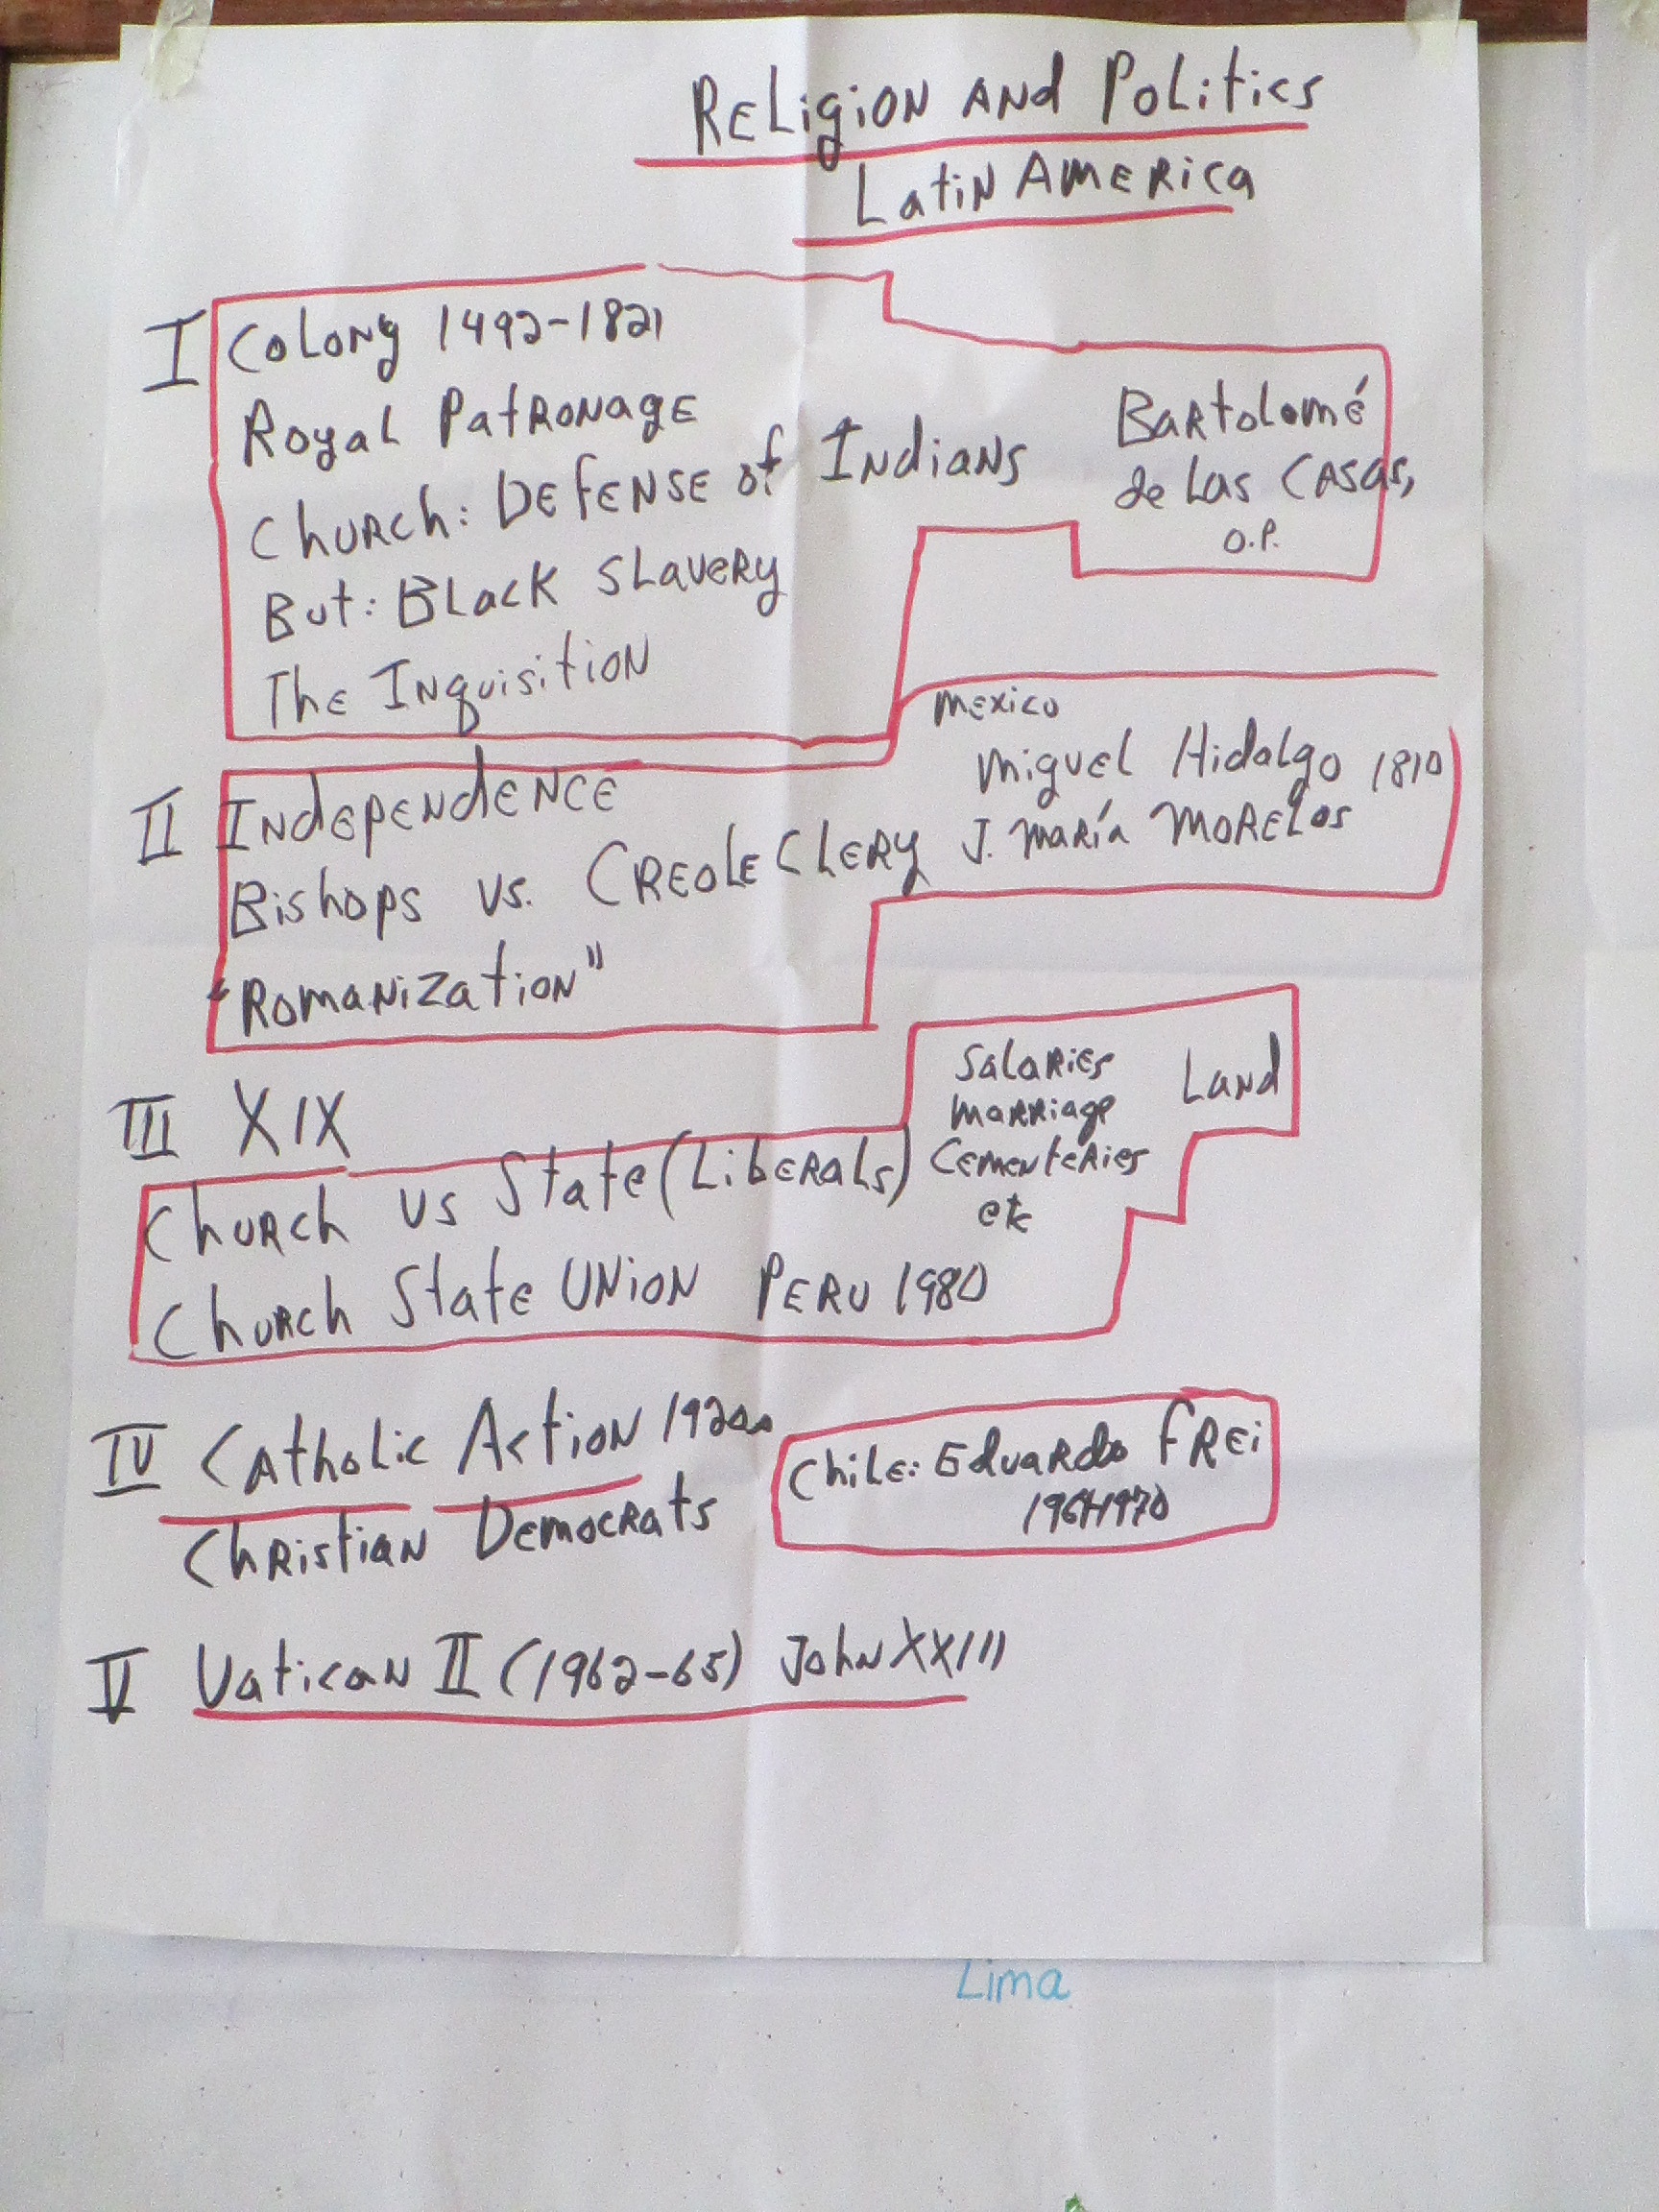 Religion and Politics
Latin America
I Colony 1492-1821
Royal Patronage
Church: Defense of Indians
Bartolomé
de Las Casas,
O.P.
But: Black Slavery
The Inquisition
Mexico
Miguel Hidalgo 1810
II Independence
Bishops vs. Creole Clery J. María Morelos
"Romanization"
III XIX
Church vs State (Liberals)
Salaries
Marriage
Cementeries
etc
Land
Church State Union Peru 1980
IV Catholic Action 1920s
Christian Democrats
Chile: Eduardo Frei
1964-1970
V Vatican II (1962-65) John XXIII
Lima